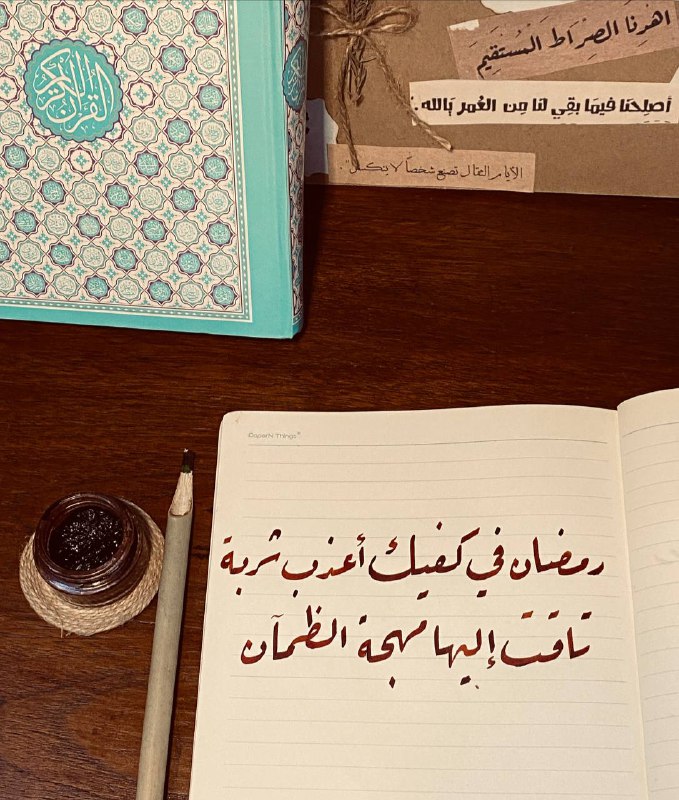 القرآن الكريم
اهدنا الصِرَاط المُستَقِيمَ
أصلِحنَا فيمَا بقِي لنَا مِن العُمر يَالله.
الأيام الثقال تصنع شخصاً لا ينكسر.
PaperN Things
رمضان في كفيك أعذب شربة
تاقت إليها مهجة الظمآن